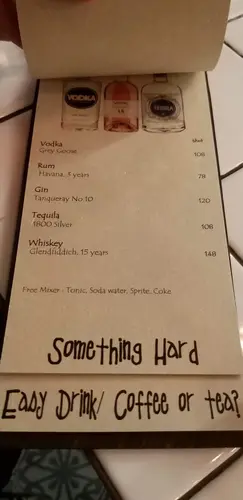 VODKA
TEQUILA
Shot
Vodka
Grey Goose 108
Rum
Havana, 3 years 78
Gin
Tanqueray No 10 120
Tequila
1800 Silver 108
Whiskey
Glendfiddich, 15 years 148
Free Mixer - Tonic, Soda water, Sprite, Coke
Something Hard
Easy Drink/ Coffee or tea?